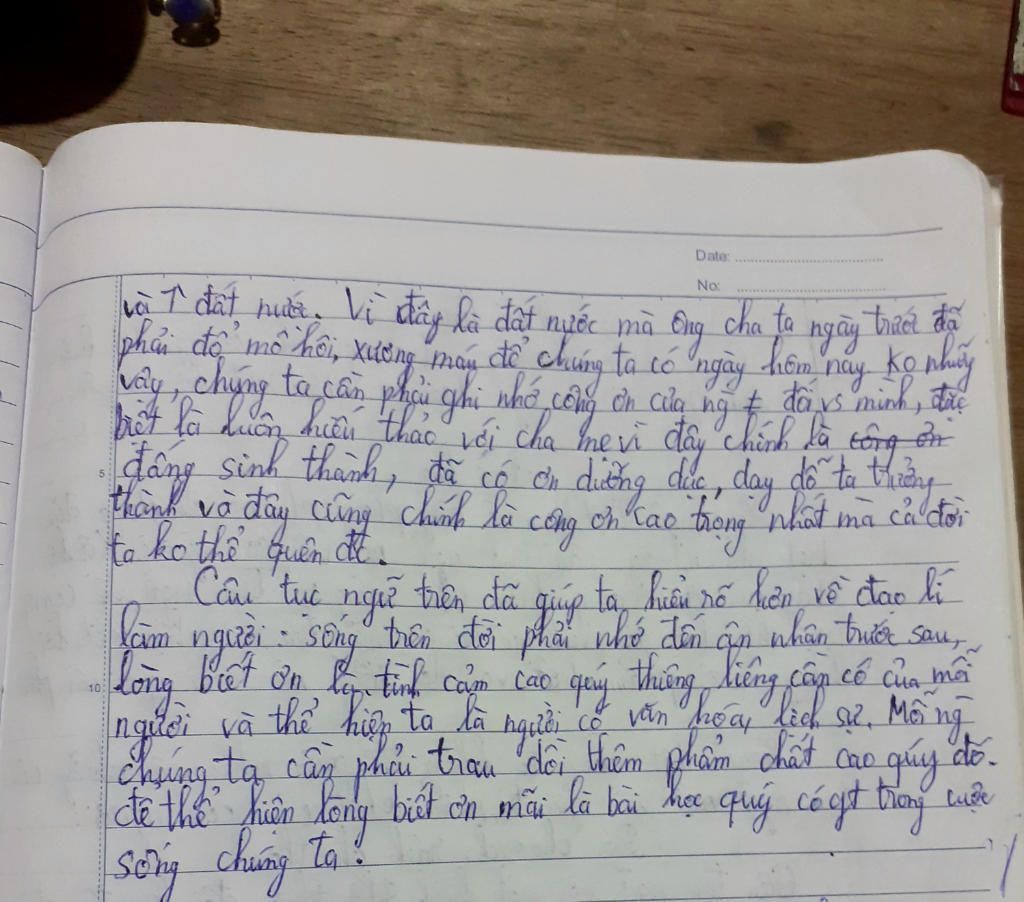 Date:
No:
và ↑ đất nước. Vì đây là đất nước mà ông cha ta ngày trước đã
phải đổ mồ hôi, xương máu để chúng ta có ngày hôm nay. Ko những
vậy, chúng ta cần phải ghi nhớ công ơn của ng ≠ đối vs mình, đặc
biệt là luôn hiếu thảo với cha mẹ vì đây chính là công ơn
5 đấng sinh thành, đã có ơn dưỡng dục, dạy dỗ ta trưởng
thành và đây cũng chính là công ơn cao trọng nhất mà cả đời
ta ko thể quên đc.
Câu tục ngữ trên đã giúp ta hiểu rõ hơn về đạo lí
làm người: sống trên đời phải nhớ đến ân nhân trước sau,
10 lòng biết ơn là tình cảm cao quý thiêng liêng cần có của mỗi
người và thể hiện ta là người có văn hóa, lịch sự. Mỗi ng
chúng ta cần phải trau dồi thêm phẩm chất cao quý đó.
để thể hiện lòng biết ơn mãi là bài học quý có gt trong cuộc
sống chúng ta.